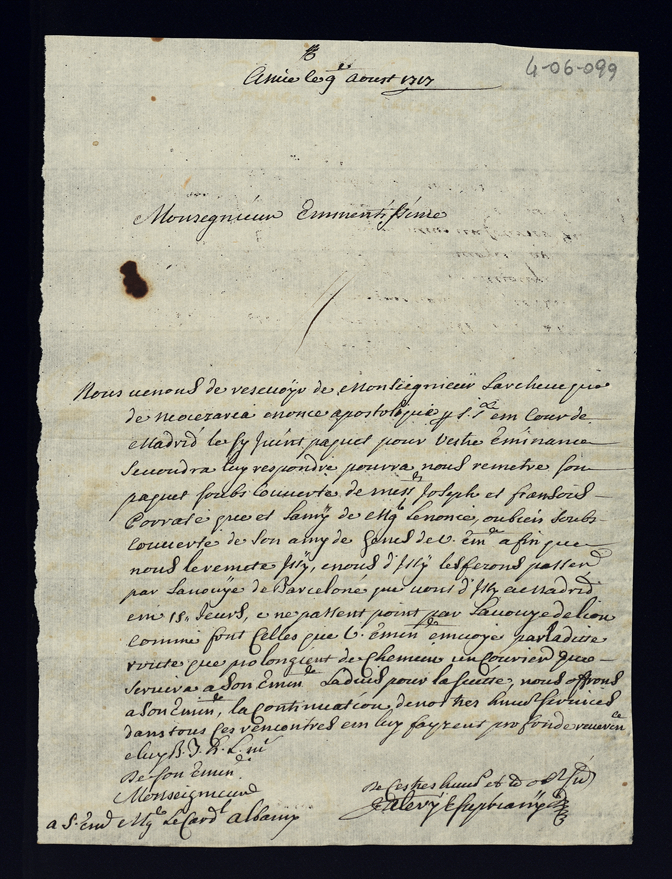 4-06-099
le 9 Aoust 1717
Monsegnieur Eminentissime
Nous venons de resevoyr de Monsiegnieur Larcheveque
de neocezarea enonce apostolique em Cour de
Madrid le sy Juint paquet pour Vestre Eminance
Secoudra luy respondre pourra nous remetre son
paquet soubs Couverte de mess.rs Joseph et fransois
Porrate que et Lamy de Mg.r Lenonce, oubien soubs
Couverte de Son amy de genes de V. Em.ce afin que
nous le remete Isy, enous d'Isy les ferons passer
par Lavoye de Barcelone que vont d'Isy a Madrid
em 15 Jours, e ne passent point par Lavoye de lion
comme font Celles que V. Emin.ce emvoye par ladite
route que prolongient de Chemein un Courier que
Servira a Son Emin.ce Ladvis pour la suitte, nous offrons
a Son Emin.ce, la Continuation de nostres humb. Services
dans tous ses rencontres em luy fayzent profonde reveren.ce
e luy B.
De Son Emin.ce
Monseigneur
a S. Em.ce Mg.r Le Card.l Albany